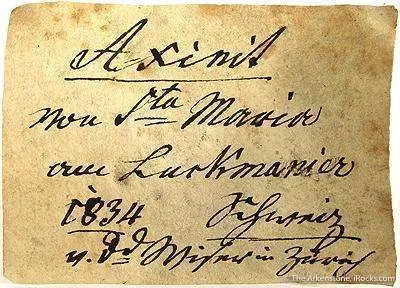 Axinit
von Sta Maria
am Luckmanier
1834 Schweiz
v. Dd Wiser in Zürich
The Arkenstone, iRocks.com